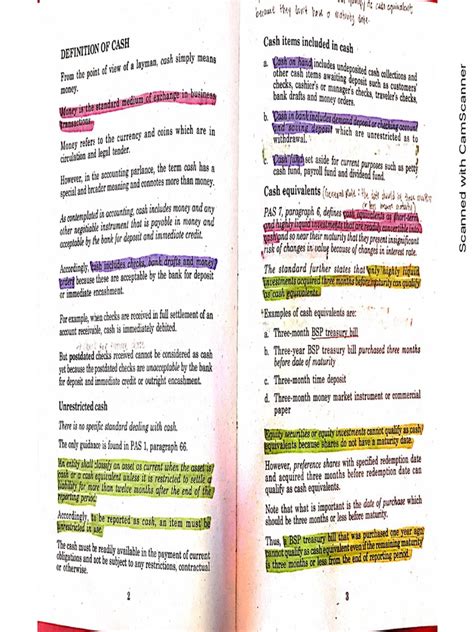 DEFINITION OF CASH
From the point of view of a layman, cash simply means
money.
Money is the standard medium of exchange in business
transactions.
Money refers to the currency and coins which are in
circulation and legal tender.
However, in the accounting parlance, the term cash has a
special and broader meaning and connotes more than money.
As contemplated in accounting, cash includes money and any
other negotiable instrument that is payable in money and
acceptable by the bank for deposit and immediate credit.
Accordingly, cash includes checks, bank drafts and money
orders because these are acceptable by the bank for deposit
or immediate encashment.
For example, when checks are received in full settlement of an
account receivable, cash is immediately debited.
But postdated checks received cannot be considered as cash
yet because the postdated checks are unacceptable by the bank
for deposit and immediate credit or outright encashment.
Unrestricted cash
There is no specific standard dealing with cash.
The only guidance is found in PAS 1, paragraph 66.
An entity shall classify an asset as current when the asset is
cash or a cash equivalent unless it is restricted to settle a
liability for more than twelve months after the end of the
reporting period.
Accordingly, to be reported as cash, an item must be
unrestricted in use.
The cash must be readily available in the payment of current
obligations and not be subject to any restrictions, contractual
or otherwise.
2
as cash equivalents
because they don't have a maturity date.
Cash items included in cash
a. Cash on hand includes undeposited cash collections and
other cash items awaiting deposit such as customers'
checks, cashier's or manager's checks, traveler's checks,
bank drafts and money orders.
b. Cash in bank includes demand deposit or checking account
and saving deposit which are unrestricted as to
withdrawal.
c. Cash fund set aside for current purposes such as petty
cash fund, payroll fund and dividend fund.
Cash equivalents
(General Rule:
PAS 7, paragraph 6, defines cash equivalents as short-term
and highly liquid investments that are readily convertible into
cash and so near their maturity that they present insignificant
risk of changes in value because of changes in interest rate.
The standard further states that only highly liquid
investments acquired three months before maturity can qualify
as cash equivalents.
Examples of cash equivalents are:
a. Three-month BSP treasury bill
b. Three-year BSP treasury bill purchased three months
before date of maturity
c. Three-month time deposit
d. Three-month money market instrument or commercial
paper
Equity securities or equity investments cannot qualify as cash
equivalents because shares do not have a maturity date.
However, preference shares with specified redemption date
and acquired three months before redemption date can
qualify as cash equivalents.
Note that what is important is the date of purchase which
should be three months or less before maturity.
Thus, a BSP treasury bill that was purchased one year ago
cannot qualify as cash equivalent even if the remaining maturity
is three months or less from the end of reporting period.
3
Scanned with CamScanner